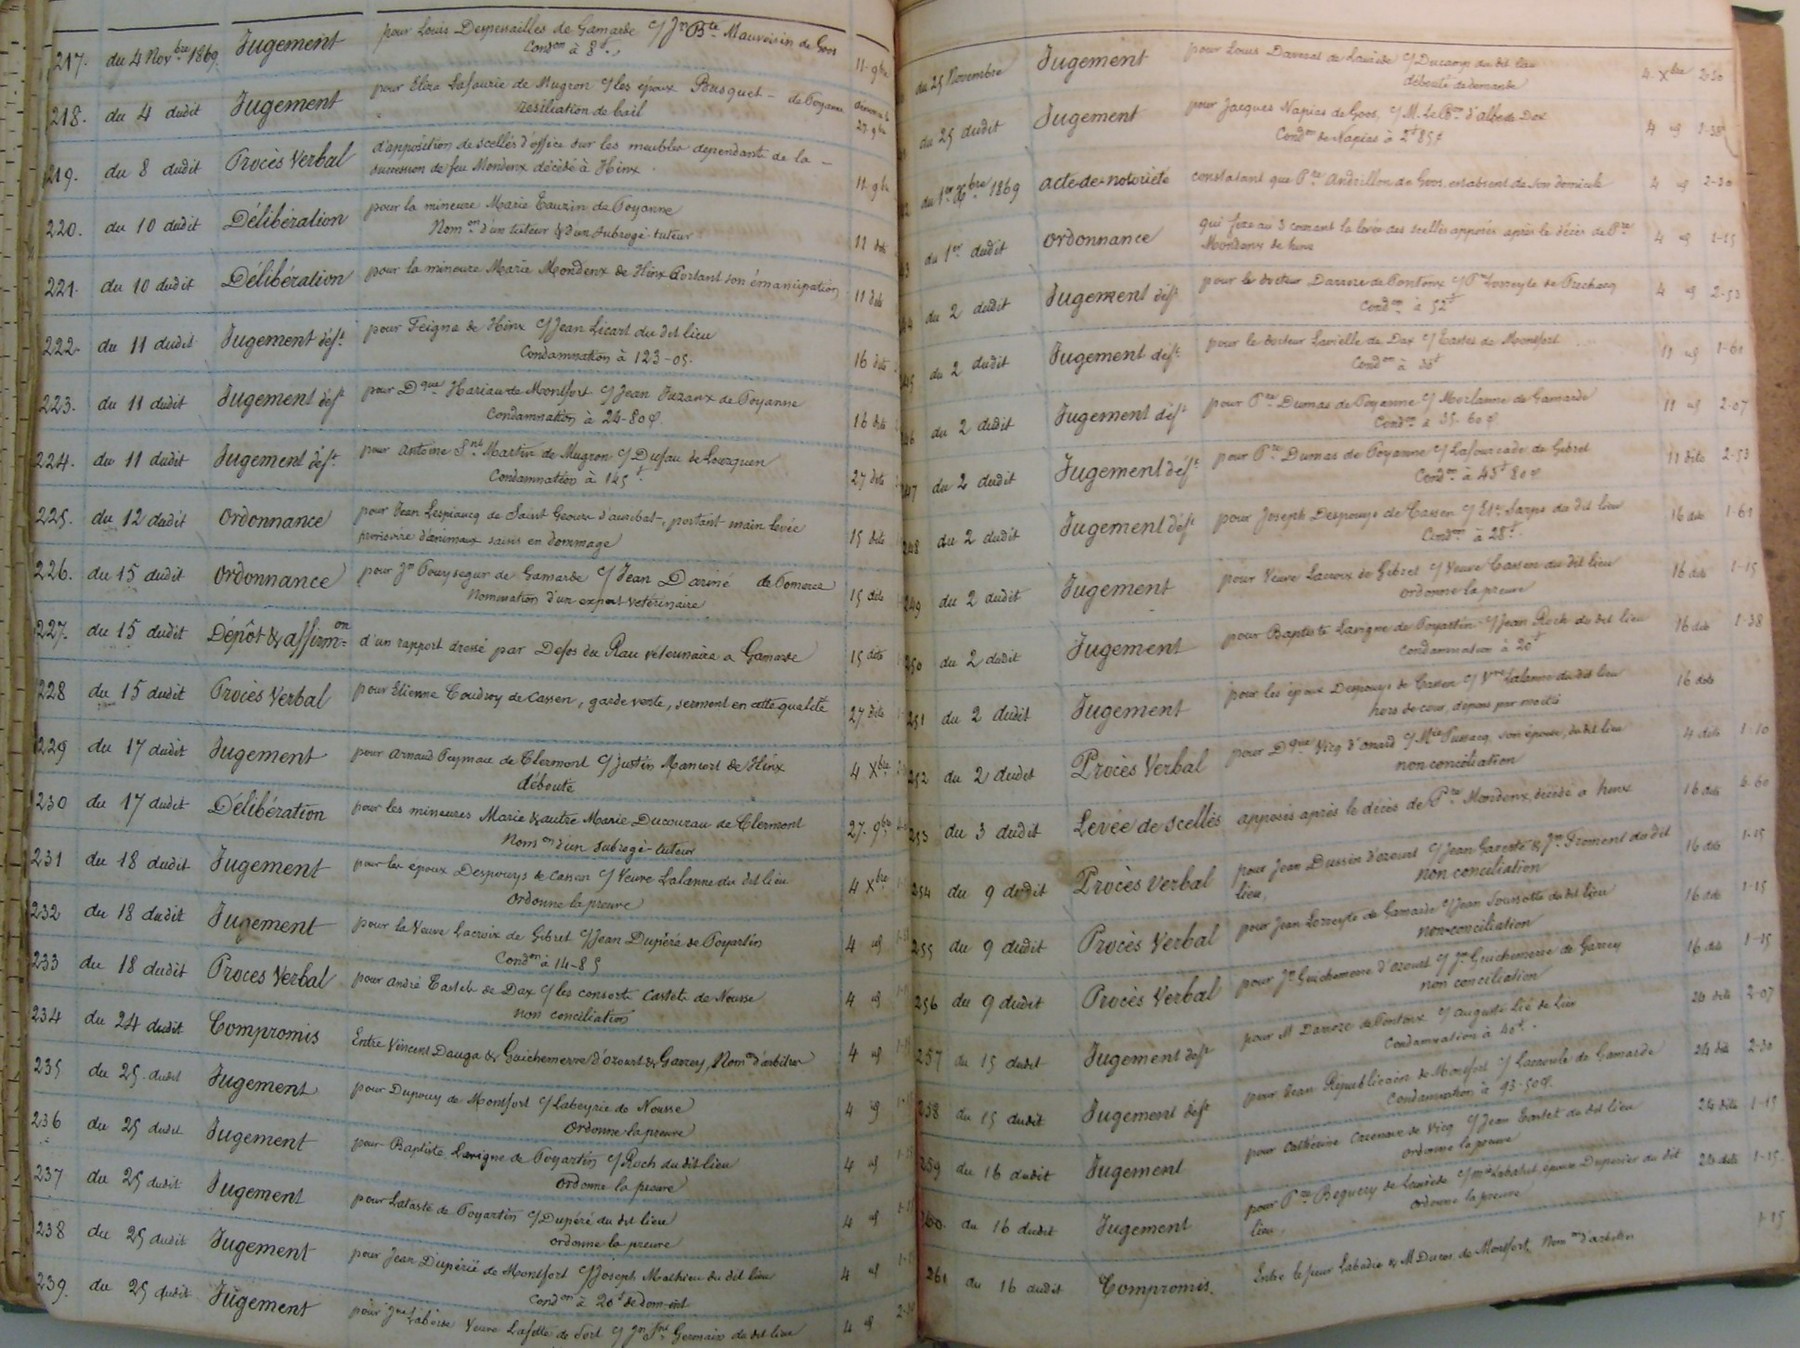 217. du 4 Nov.bre 1869. Jugement pour Louis Despenailles de Gamarde c/ Jn Bte Mauvoisin de Goos
Condon à 8f. 11 9bre
218. du 4 dudit Jugement pour Eliza Lafaurie de Mugron c/ les époux Bousquet - de Poyanne
résiliation de bail 25 9bre
219. du 8 dudit Procès Verbal d'apposition de scellés d'office sur les meubles dépendants de la -
succession de feu Mondenx décédé à Hinx. 11 9bre
220. du 10 dudit Délibération pour la mineure Marie Tauzin de Poyanne
Nom.on d'un tuteur & d'un subrogé-tuteur 11 dito
221. du 10 dudit Délibération pour la mineure Marie Mondenx de Hinx Portant son émancipation 11 dito
222. du 11 dudit Jugement déft. pour Feigna de Hinx c/ Jean Licart du dit lieu
Condamnation à 123-05. 16 dito
223. du 11 dudit Jugement déft pour Dque Hariau de Montfort c/ Jean Dazanx de Poyanne
Condamnation à 24-80 c. 16 dito
224. du 11 dudit Jugement déft. pour Antoine St Martin de Mugron c/ Dufau de Lourquen
Condamnation à 145f. 27 dito
225. du 12 dudit Ordonnance pour Jean Lespiaucq de Saint Geours d'auribat, portant main levée
provisoire d'animaux saisis en dommage 15 dito
226. du 15 dudit Ordonnance pour Jn Pouysegur de Gamarde c/ Jean Dariné de Pomarez
Nomination d'un expert vétérinaire 15 dito
227. du 15 dudit Dépôt & affirm.on d'un rapport dressé par Defos du Rau vétérinaire a Gamarde 15 dito
228 du 15 dudit Procès Verbal pour Etienne Coudroy de Cassen, garde vente, serment en cette qualité 27 dito
229 du 17 dudit Jugement pour Arnaud Peymaux de Clermont c/ Justin Mancort de Hinx
débouté 4 Xbre
230 du 17 dudit Délibération pour les mineures Marie & autre Marie Ducournau de Clermont
Nom.on d'un subrogé-tuteur 27. 9bre
231 du 18 dudit Jugement pour les époux Despouys de Cassen c/ Veuve Lalanne du dit lieu
Ordonne la preuve 4 Xbre
232 du 18 dudit Jugement pour la Veuve Lacroix de Gibret c/ Jean Dupéré de Poyartin
Condon à 14-85 4 "
233 du 18 dudit Procès Verbal pour André Castets de Dax c/ les consorts Castets de Nousse
non conciliation 4 "
234 du 24 dudit Compromis Entre Vincent Dauga & Guichemerre d'ozourt & Garrey, Nom.on d'arbitre 4 "
235 du 25 dudit Jugement pour Dupouy de Montfort c/ Labeyrie de Nousse
Ordonne la preuve 4 "
236 du 25 dudit Jugement pour Baptiste Lavigne de Poyartin c/ Roch du dit lieu
Ordonne la preuve 4 "
237 du 25 dudit Jugement pour Lataste de Poyartin c/ Dupéré du dit lieu
Ordonne la preuve 4 "
238 du 25 dudit Jugement pour Jean Dupérié de Montfort c/ Joseph Mathieu du dit lieu
Condon à 20f de dom.-int. 4 "
239. du 25 dudit Jugement pour Jque Laborde Veuve Lafitte de Sort c/ Jn Germain du dit lieu 4 "
du 25 Novembre Jugement pour Louis Darracq de Laurède c/ Ducamp du dit lieu
débouté de demande 4. Xbre
du 25 dudit Jugement pour Jacques Napias de Goos, c/ M. Le Bon d'albe de Dax
Condon de Napias à 2f 85c 4 " 1-38
du 1er Xbre 1869 acte de notoriété constatant que Pre Andrillon de Goos est absent de son domicile 4 " 2-30
du 1er dudit Ordonnance qui fixe au 3 courant la levée des scellés apposés après le décès de Pre
Mondenx de hinx 4 " 1-15
du 2 dudit Jugement déft. pour le docteur Darroze de Pontonx c/ Pre Lorreyte de Prechacq
Condon à 52f 4 " 2-53
du 2 dudit Jugement déft. pour le Docteur Lavielle de Dax c/ Castets de Montfort
Condon à 30f 11 " 1-61
du 2 dudit Jugement déft pour Pre Dumas de Poyanne c/ Morlanne de Gamarde
Condon à 35-60 c 11 " 2-07
du 2 dudit Jugement déft. pour Pre Dumas de Poyanne c/ Lafourcade de Gibret
Condon à 45f 80c 11 dito 2-53
248 du 2 dudit Jugement déft pour Joseph Despouys de Cassen c/ Ete Sarps du dit lieu
Condon à 28f. 16 dito 1-61
249 du 2 dudit Jugement pour Veuve Lacroix de Gibret c/ Veuve Cassen du dit lieu
ordonne la preuve 16 dito 1-15
250 du 2 dudit Jugement pour Baptiste Lavigne de Poyartin c/ Jean Roch du dit lieu
Condamnation à 20f 16 dito 1-38
251 du 2 dudit Jugement pour les époux Despouys de Cassen c/ Vve Lalanne du dit lieu
hors de cour, dépens par moitié 16 dito
252 du 2 dudit Procès Verbal pour Dque Vicq d'onard c/ Mie Pussacq, son épouse, du dit lieu
non conciliation 4 dito 1-10
253 du 3 dudit Levée de scellés apposés après le décès de Pre Mondenx, décédé a hinx 16 dito 4-60
254 du 9 dudit Procès verbal pour Jean Dussin d'ozourt c/ Jean Gareste & Jn Froment du dit
lieu, non conciliation 16 dito 1-15
255 du 9 dudit Procès Verbal pour Jean Lorreyte de Gamarde c/ Jean Soussotte du dit lieu
non-conciliation 16 dito 1-15
256 du 9 dudit Procès Verbal pour Jn Guichemerre d'ozourt c/ Jn Guichemerre de Garrey
non conciliation 16 dito 1-15
257 du 15 dudit Jugement déft pour M Darroze de Pontonx c/ Auguste Lié de Lier
Condamnation à 45f. 24 dito 2-07
258 du 15 dudit Jugement déft pour Jean Républicain de Montfort c/ Lacoule de Gamarde
Condamnation à 93-50c. 24 dito 2-30
259 du 16 dudit Jugement pour Catherine Cazenave de Vicq c/ Jean Castet du dit lieu
ordonne la preuve 24 dito 1-15
260. du 16 dudit Jugement pour Pre Bequery de Laurède c/ Mie Labahut, épouse Duperier du dit
lieu, ordonne la preuve 24 dito 1-15.
261 du 16 dudit Compromis. Entre le sieur Labadie & M Ducos de Montfort, Nom.on d'arbitre 1-15